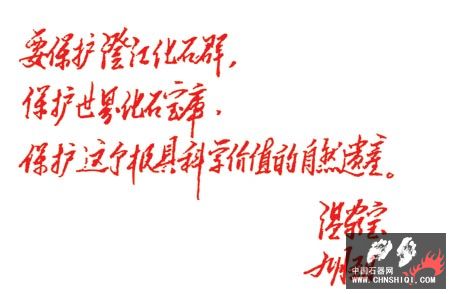 要保护澄江化石群,
保护世界化石宝库.
保护这个极具科学价值的自然遗产。
温家宝
中国石器网
WWW.CHNSHIQI.COM